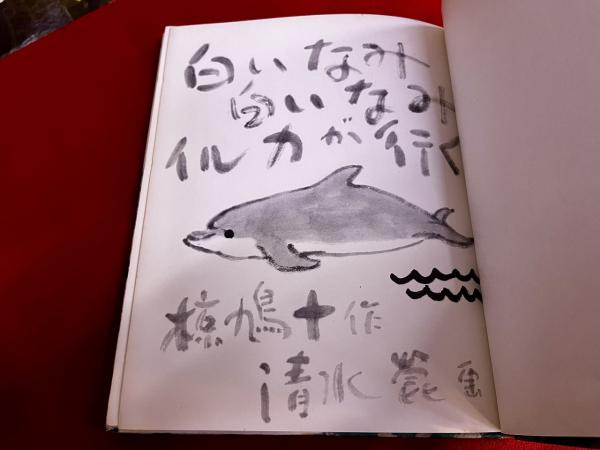 白いなみ
白いなみ
イルカが行く
椋鳩十作
清水崑画